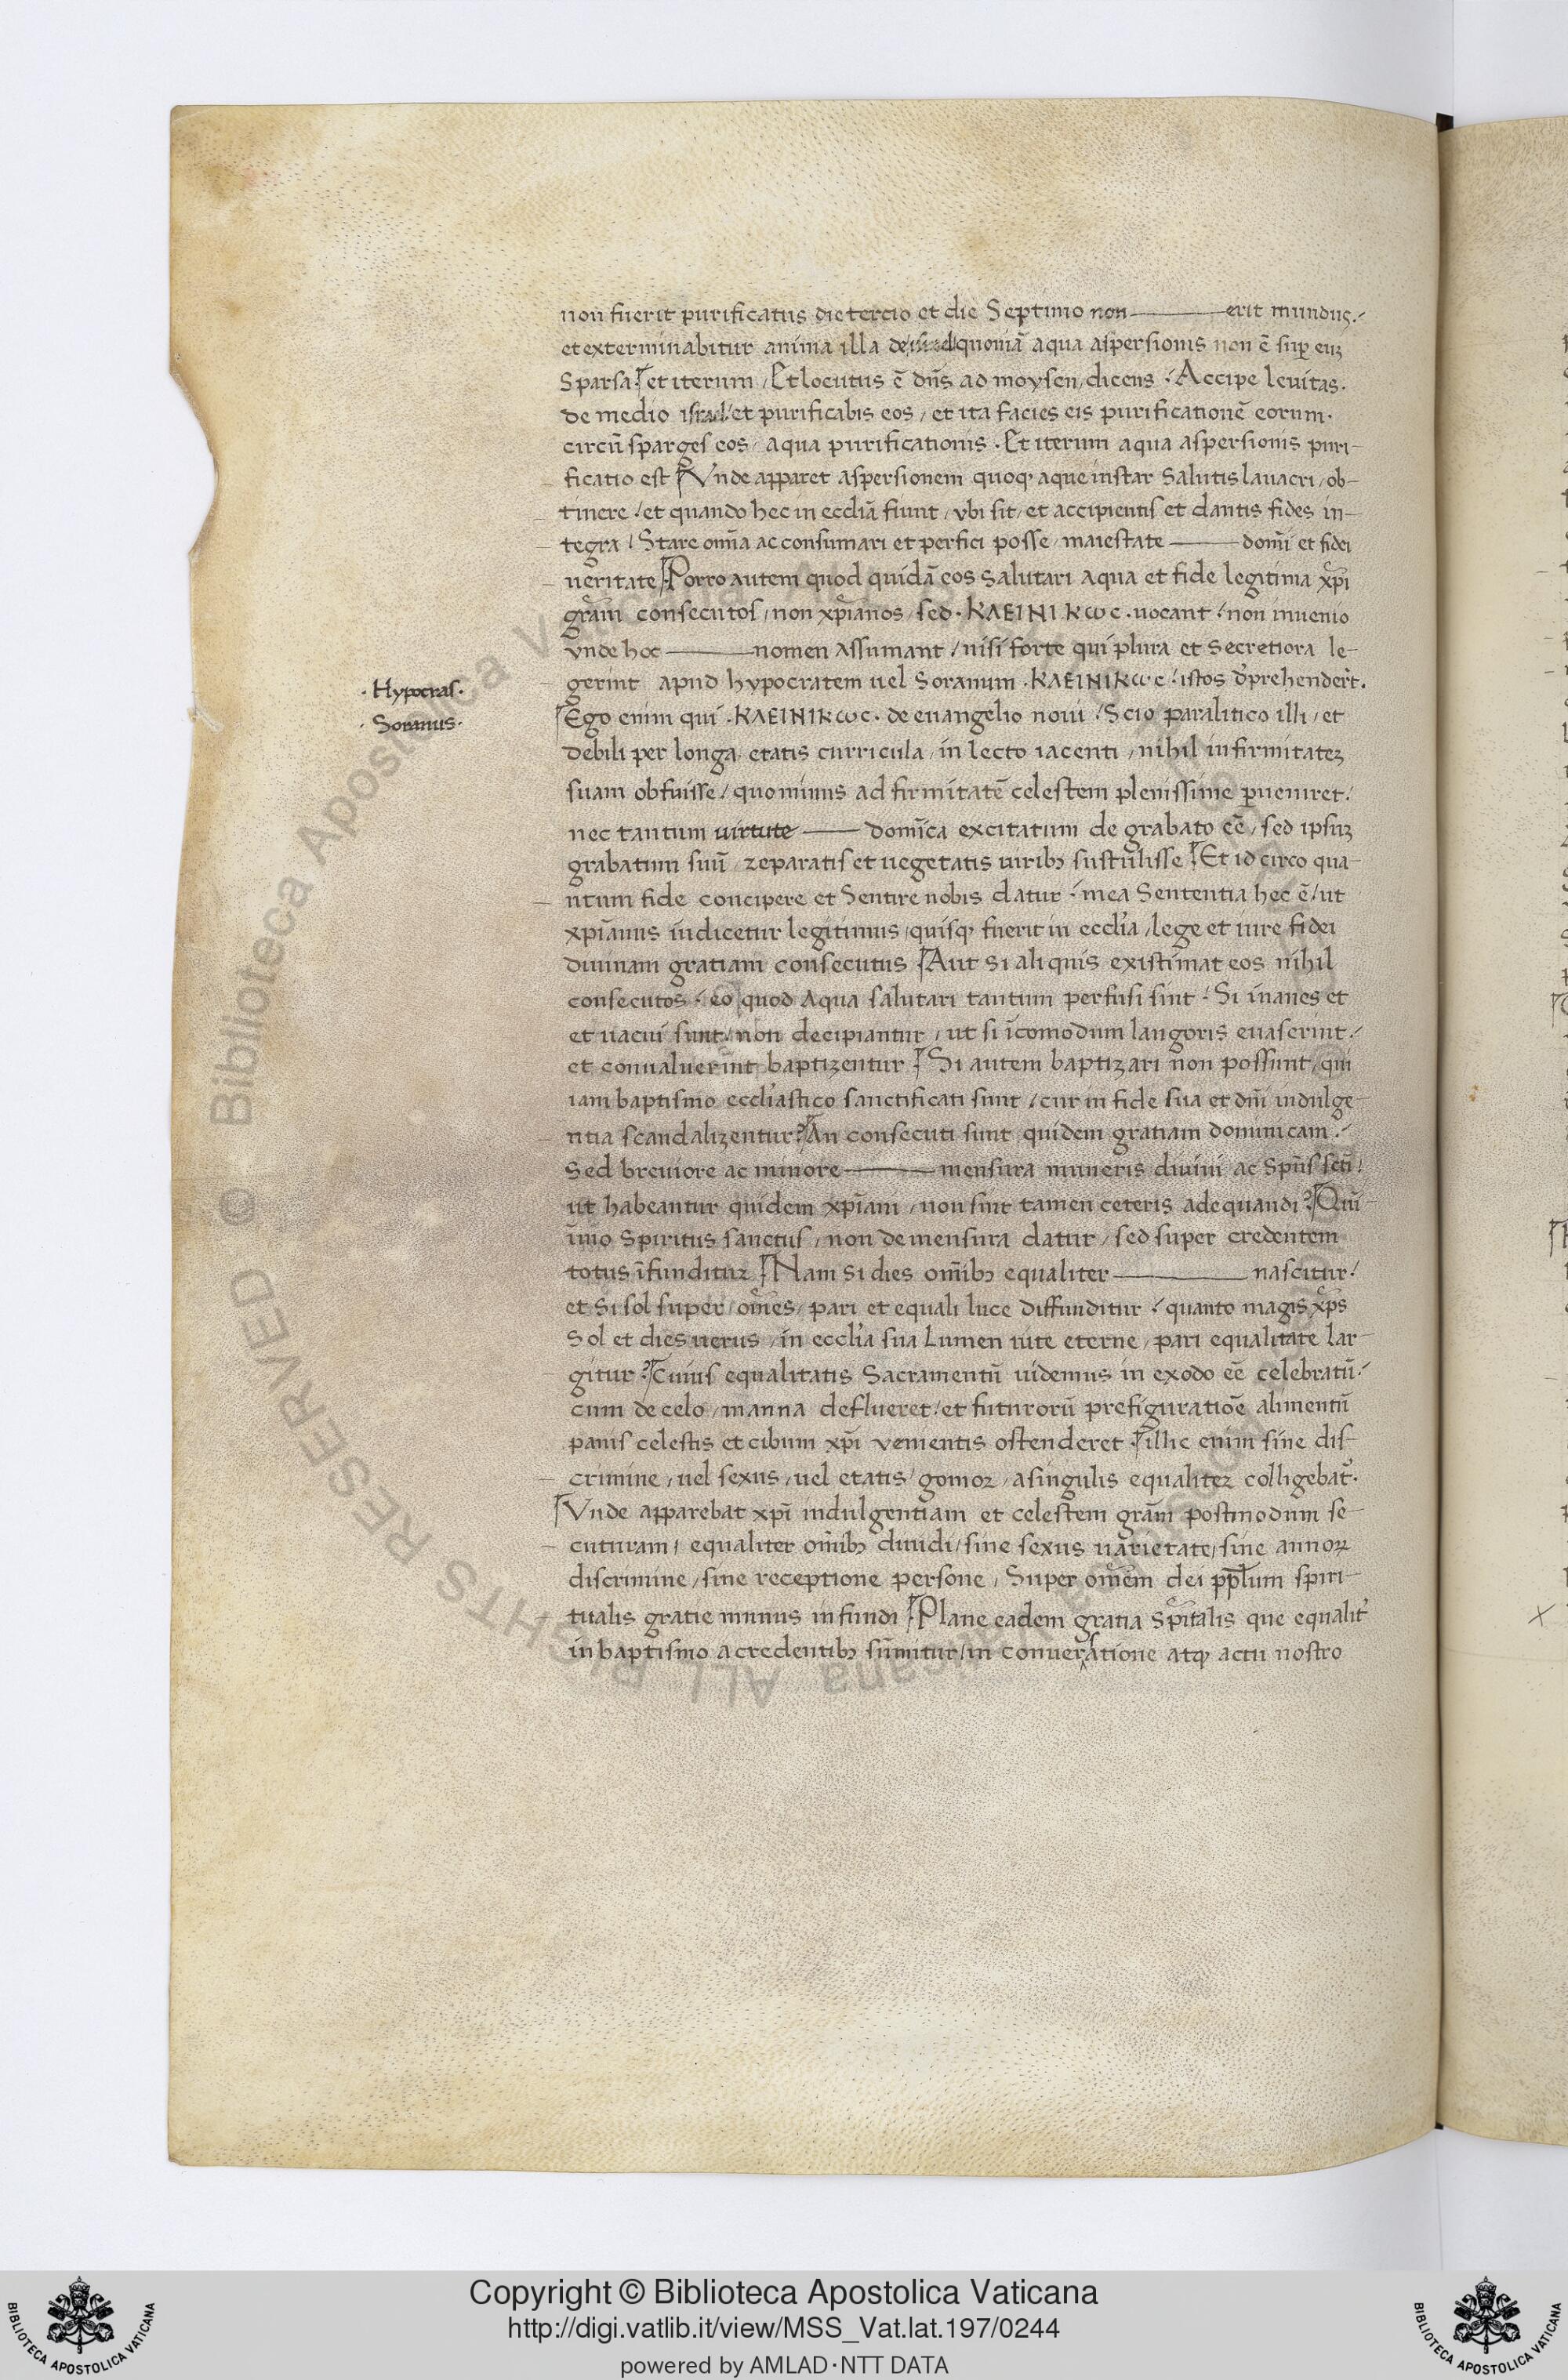 non fuerit purificatus die tercio et die Septimo non——erit mundus./
et exterminabitur anima illa de isrł quoniā aqua aspersionis non ē sup̄ euꝫ
Sparsa. et iterum / Et locutus ē dn̄s ad moysen, dicens · Accipe leuitas.
de medio israel / et purificabis eos / et ita facies eis purificationē eorum·
circū sparges eos / aqua purificationis · Et iterum aqua aspersionis puri-
ficatio est Vnde apparet aspersionem quoqꝫ aque instar Salutis lauacri / ob-
tinere / et quando hec in eccliā fiunt / vbi sit / et accipientis et dantis fides in-
tegra / Stare om̄ia ac consumari et perfici posse / maiestate —— domī et fidei
ueritate Porro autem quod quidā eos salutari aqua et fide legitima xp̄i
grām consecutos / non xp̄ianos / sed · ΚΛΕΙΝΙΚωC · uocant / non inuenio
vnde hoc ——nomen assumant / nisi forte qui plura et Secretiora le-
gerint apud hypocratem uel Soranum · ΚΛΕΙΝΙΚωC / istos dꝰprehenderꝰt.
· Hypocras·
· Soranus·
Ego enim qui · ΚΛΕΙΝΙΚωC · de euangelio noui / Scio paralitico illi / et
debili per longa etatis curricula / in lecto iacenti / nihil infirmitateꝫ
suam obfuisse / quominus ad firmitatē celestem plenissime ꝑueniret./
nec tantum uirtute —— domīca excitatum de grabato eē / sed ipsuꝫ
grabatum suū / reparatis et uegetatis uiribꝫ sustulisse Et id circo qua-
ntum fide concipere et Sentire nobis datur · mea Sententia hec ē / ut
xp̄ianus iudicetur legitimus / quisqꝫ fuerit in ecclꝰia / lege et iure fidei
diuinam gratiam consecutus Aut si ali quis existimat eos nihil
consecutos · eo quod aqua salutari tantum perfusi sint · Si inanes et
et uacui sunt / non decipiantur / ut si īcomodum langoris euaserint./
et conualuerint baptizentur Si autem baptizari non possunt / qui
iam baptismo ecclꝰiastico sanctificati sunt / cur in fide sua et dn̄i indulge-
ntia scandalizentur? An consecuti sunt quidem gratiam dominicam./
Sed breuiore ac minore —— mensura muneris diuini ac Spūs scī /
ut habeantur quidem xp̄iani / non sint tamen ceteris adequandi? Quī
īmo Spiritus sanctus / non de mensura datur / sed super credentem
totus īfunditur Nam si dies om̄ibꝫ equaliter —— nascitur·/
et Si sol super om̄es / pari et equali luce diffunditur / quanto magis xp̄s
Sol et dies uerus / in ecclꝰia sua Lumen uite eterne / pari equalitate lar-
gitur? Cuius equalitatis Sacramentū uidemus in exodo eē celebratū·/
cum de celo / manna deflueret / et futurorū prefiguratiōe alimentū
panis celestis et cibum xp̄i venientis ostenderet illic enim sine dis-
crimine / uel sexus / uel etatis / gomor / a singulis equaliter colligebatꝰ.
Vnde apparebat xp̄i indulgentiam et celestem grām postmodum se-
cuturam / equaliter om̄ibꝫ diuidi / sine sexus uarietate / sine annoꝝ
discrimine / sine receptione persone / Super om̄em dei pp̄lum spiri-
tualis gratie munus infundi Plane eadem gratia Spītalis que equalitꝰ
in baptismo a credentibꝫ sūmitur / in conuersatione atqꝫ actu nostro
Copyright © Biblioteca Apostolica Vaticana
http://digi.vatlib.it/view/MSS_Vat.lat.197/0244
powered by AMLAD·NTT DATA